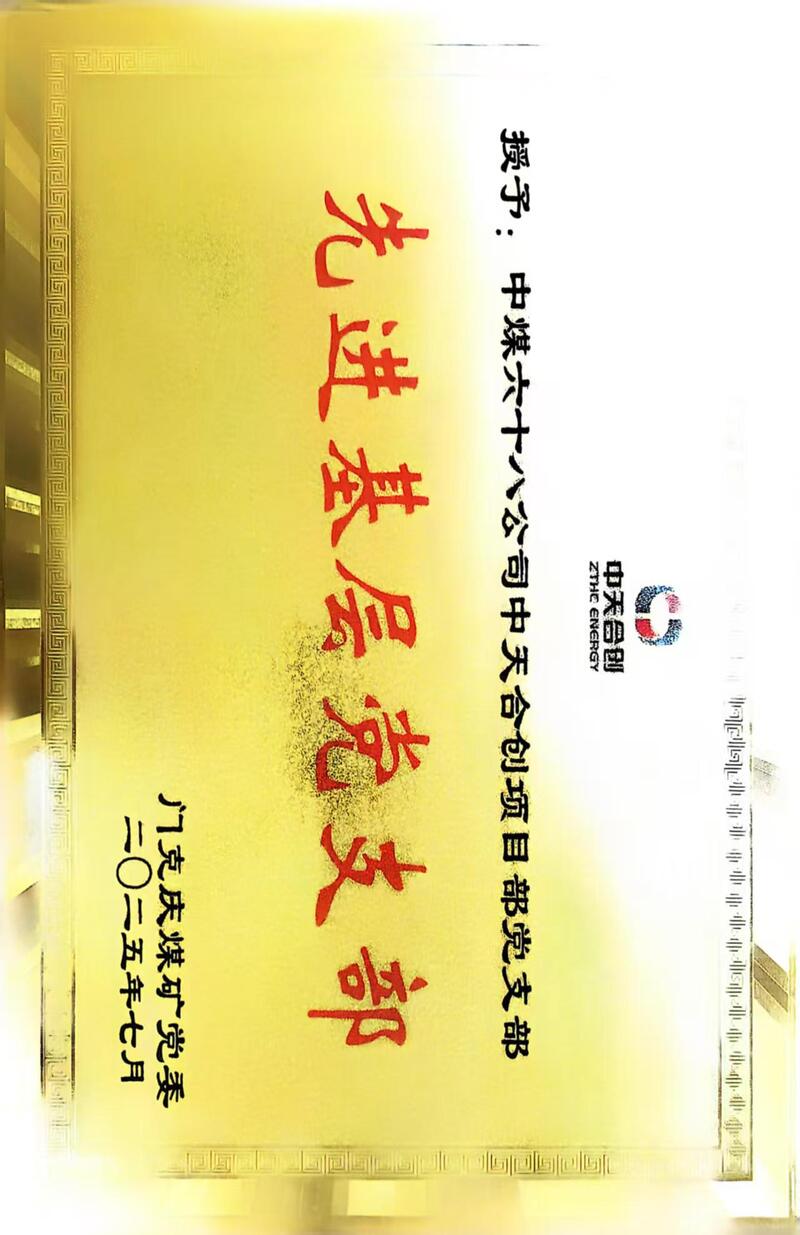 中天合创
ZTHC ENERGY
授予：中煤六十八公司中天合创项目部党支部
先进基层党支部
门克庆煤矿党委
二〇二五年七月